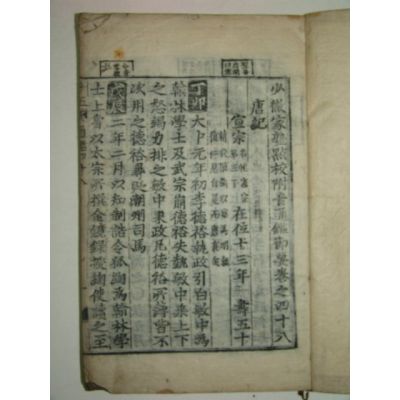 少微家塾點校附音通鑑節要卷之四十八
唐記
宣宗 在位十三年 壽五十
丁卯 大中元年初李德裕執政引白敏中爲
翰林學士及武宗崩德裕失勢敏中乘上下
之怒竭力排之敏中秉政凡德裕所薄皆不
次用之德裕尋貶潮州司馬
戊辰 二年二月以知制誥令狐綯爲翰林學
士上嘗以太宗所撰金鏡錄授綯使讀之至